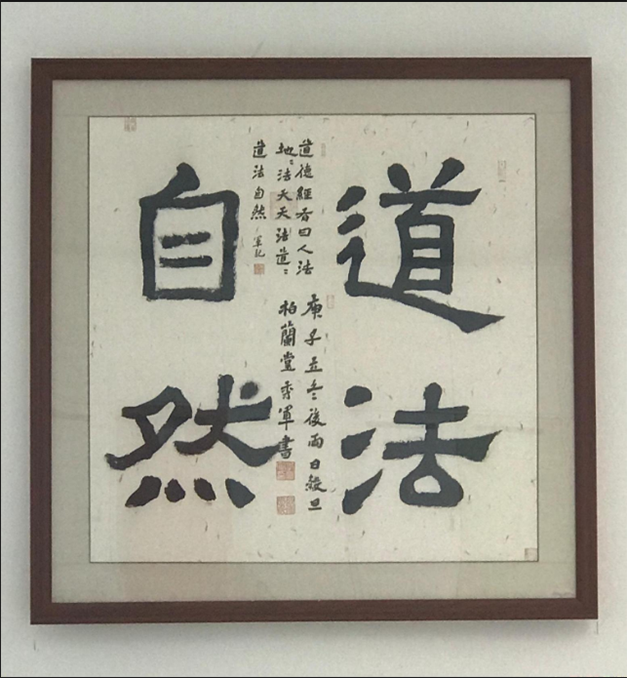 道法
自然
道德經曰人法
地〻法天天法道〻
道法自然 軍記
庚子立冬後兩日穀旦
柏蘭堂 軍書